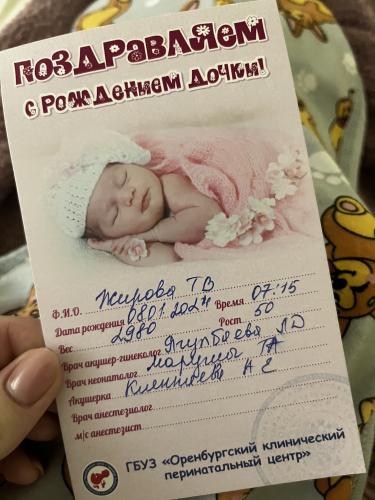 ПОЗДРАВЛЯЕМ
С РОЖДЕНИЕМ ДОЧКИ!
Ф.И.О. Жирова Т В
Дата рождения 08.01.2024 Время 07:15
Вес 2980 Рост 50
Врач акушер-гинеколог Ягупбаева ЛД
Врач неонатолог
Акушерка А Е
Врач анестезиолог
м/с анестезист
ГБУЗ «Оренбургский клинический
перинатальный центр»